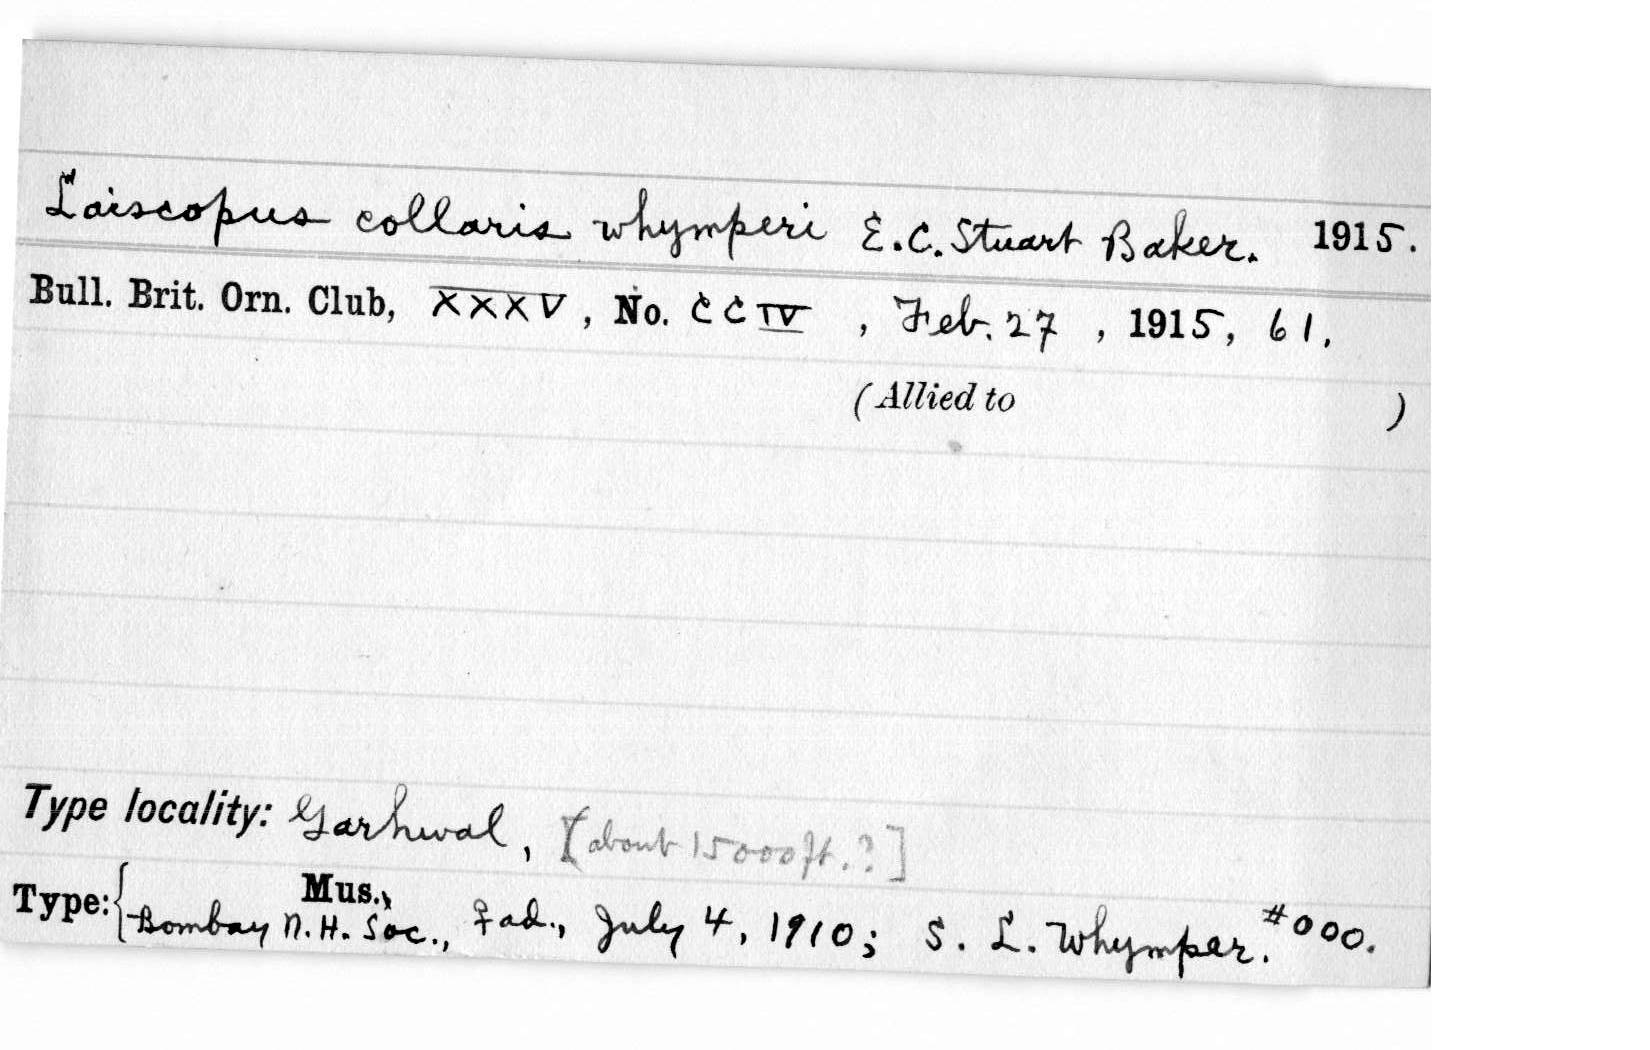 Laiscopus collaris whymperi E.C. Stuart Baker. 1915.
Bull. Brit. Orn. Club, XXXV, No. CCIV, Feb. 27, 1915, 61.
(Allied to )
Type locality: Garhwal, [about 15000 ft.?]
Type: { Mus.,
Bombay N.H. Soc., ♀ ad., July 4, 1910; S. L. Whymper. #000.